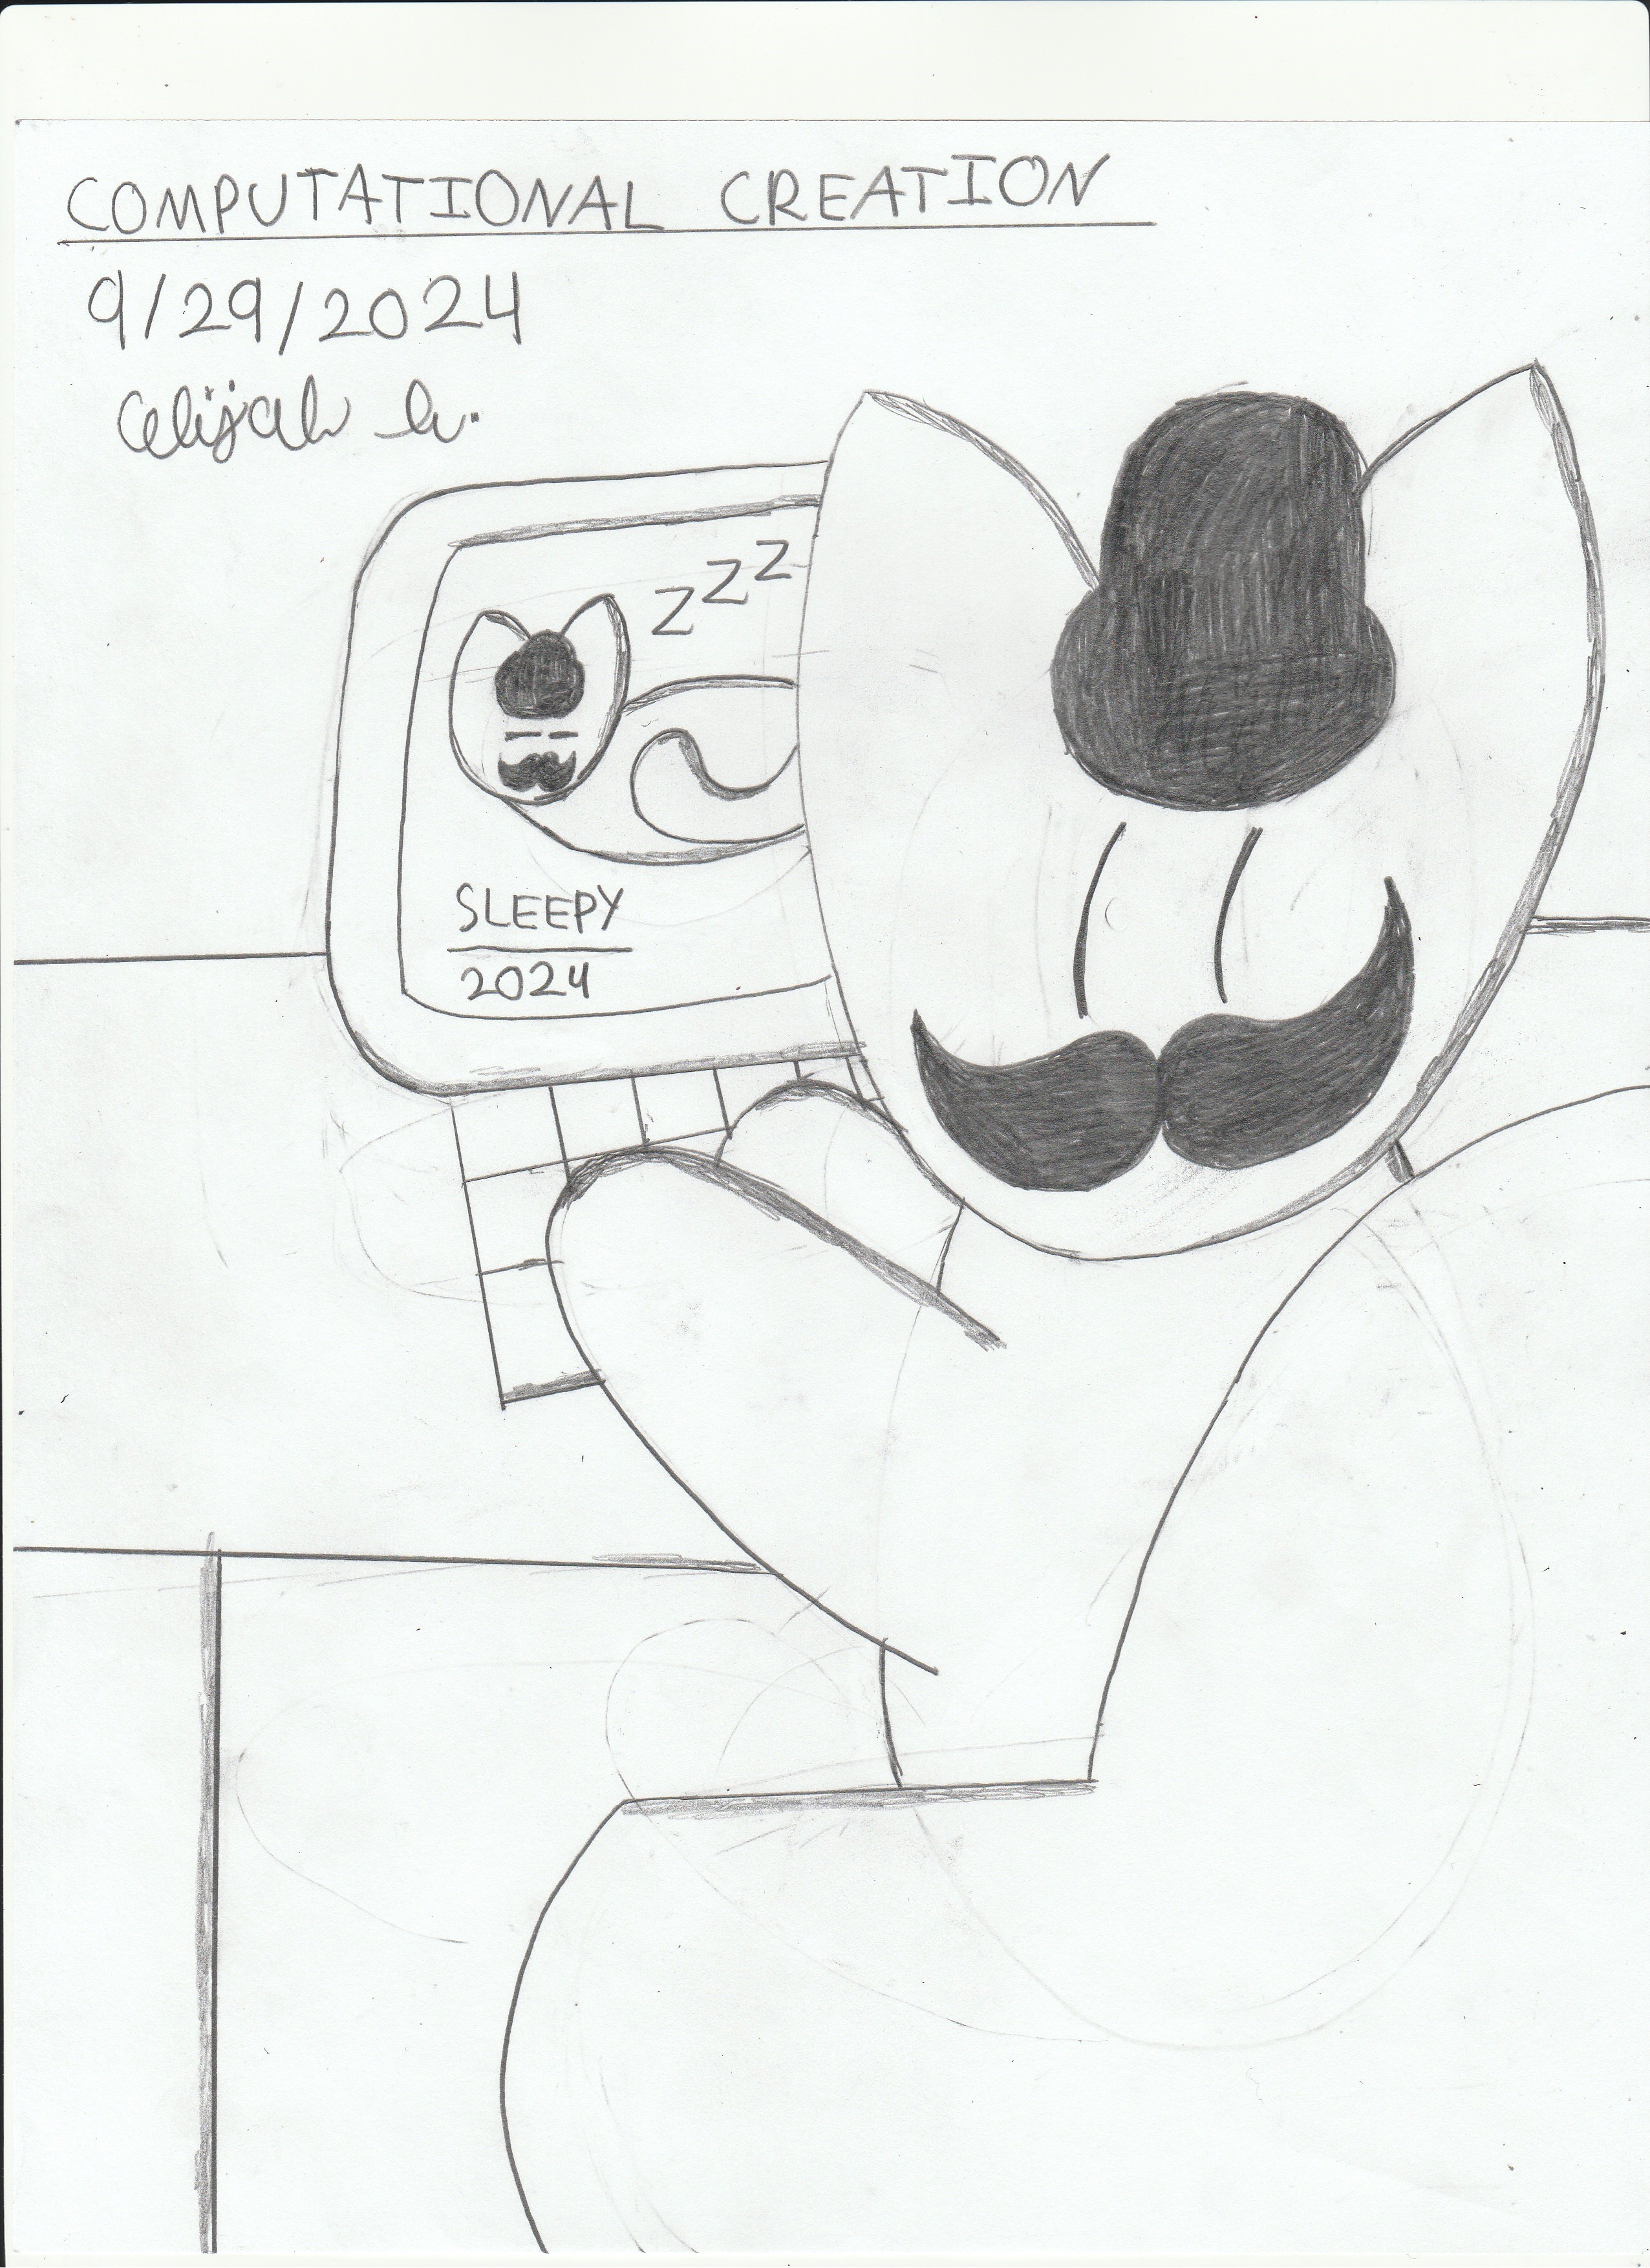 COMPUTATIONAL CREATION
9/29/2024
Elijah h.
Z Z Z
SLEEPY
2024